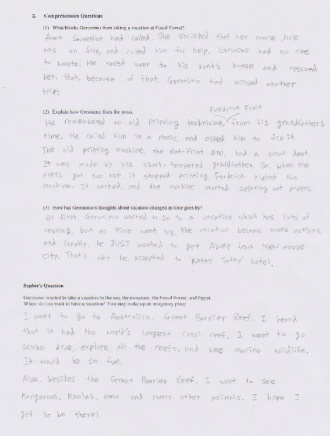 2. Comprehension Questions
(1) What keeps Geronimo from taking a vacation at Fossil Forest?
Aunt Sweetfur had called. She shrieked that her mouse hole
was on fire, and called him for help. Geronimo had no time
to waste. He raced over to his aunt's house and rescued
her. But, because of that Geronimo had missed another
trip.
(2) Explain how Geronimo fixes the press.
He remembered an old printing technician, from his grandfather's
time. He called him in a panic, and asked him to fix it.
The old printing machine, the Rat-Print 800, had a small dent.
It was made by his short-tempered grandfather. So, when the
press got too hot, it stopped printing. Fredrick kicked the
machine. It worked, and the machine started spitting out papers.
(3) How has Geronimo's thoughts about vacation changed as time goes by?
At first, Geronimo wanted to go to a vacation which has lots of
resting, but as time went by, the vacation became more actions,
and finally, he JUST wanted to get away from New mouse
city. That's why he accepted to "Ratty Tatty" hotel.
Sophie's Question
Geronimo wanted to take a vacation to the sea, the mountain, the Fossil Forest, and Egypt.
Where do you want to have a vacation? You may make up an imaginary place.
I want to go to Australia, Great Barrier Reef. I heard
that it had the world's largest coral reef. I want to go
scuba dive, explore all the reefs, and see marine wildlife.
It would be so fun.
Also, besides the Great Barrier Reef, I want to see
Kangaroos, Koalas, emu, and many other animals. I hope I
get to be there!